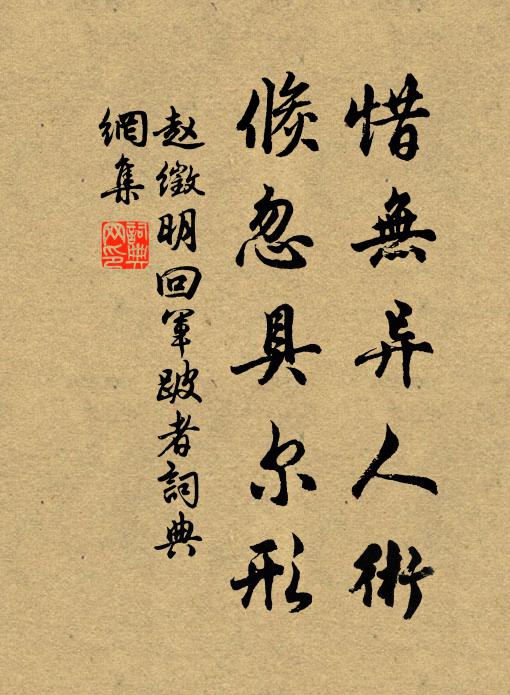 惜無异人術
倏忽具尔形
赵徵明回軍跛者詞典
網集
詞典
网印